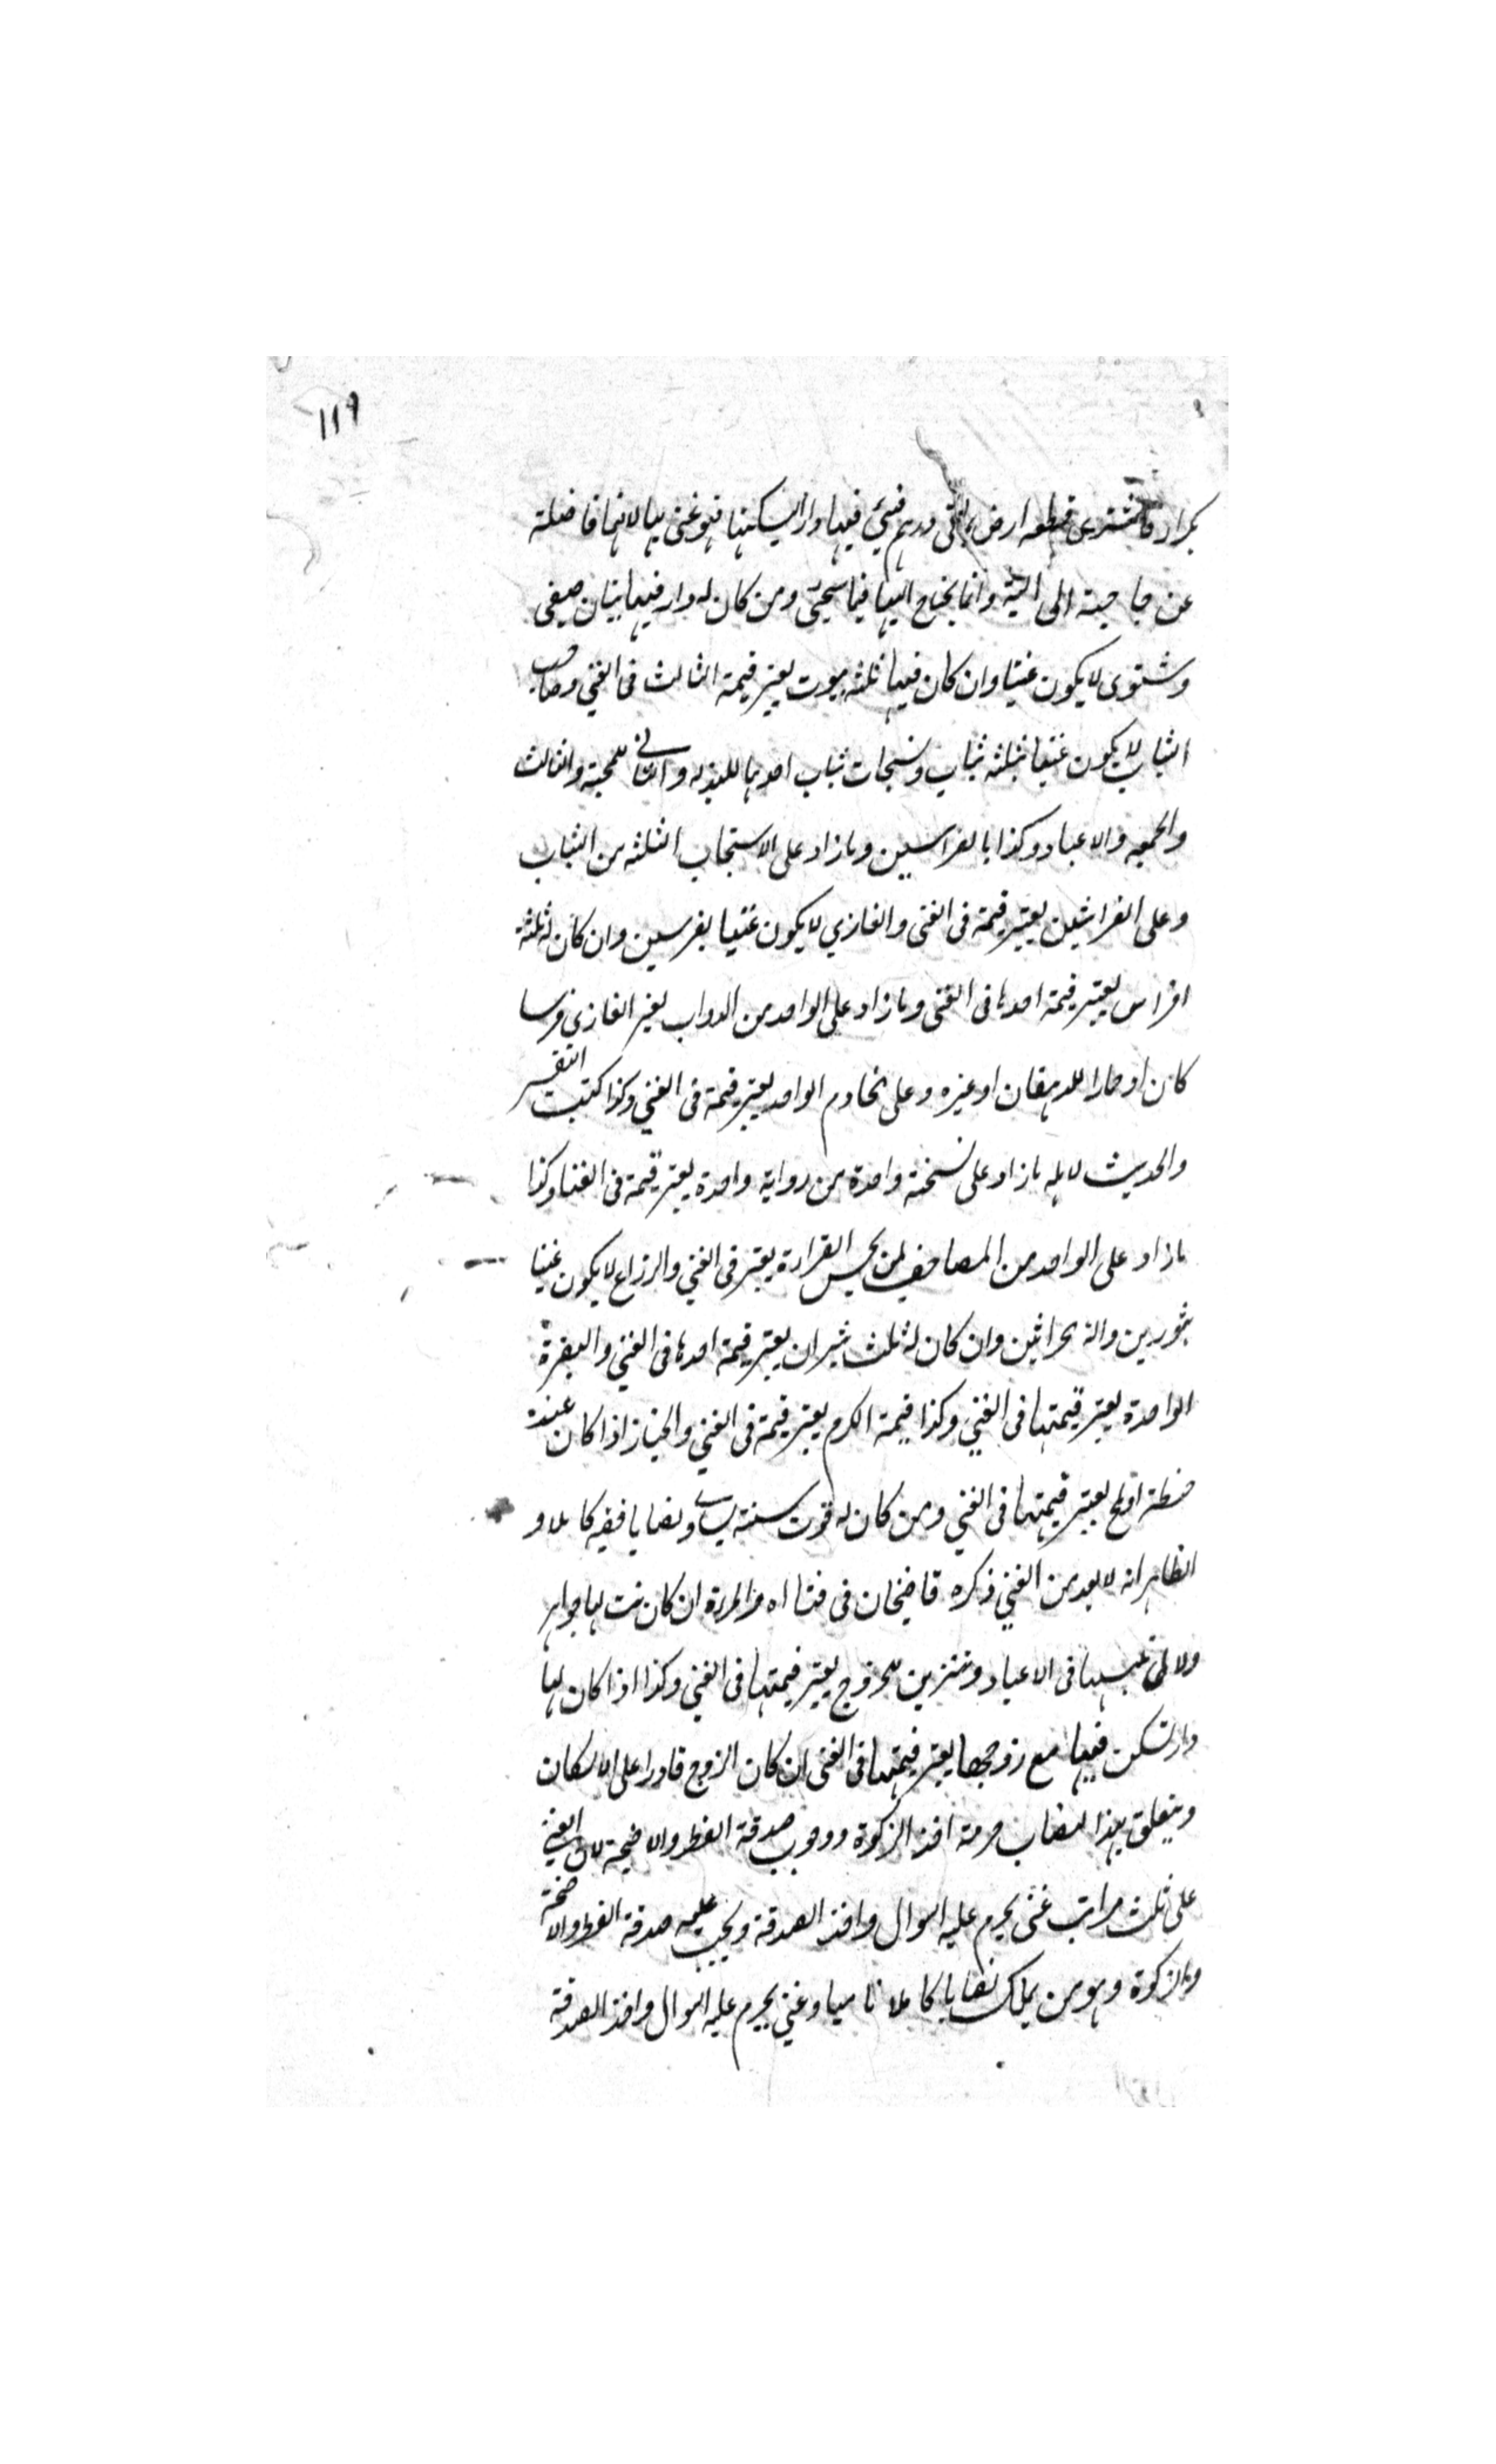 ١١٩
بكراء فاشترى قطعة ارض بمائتى درهم فبنى فيها دارا ليسكنها فهو غنى بها لانها فاضلة
عن حاجته الى السنة وانما يحتاج اليها فيما سيجئ ومن كان له دار فيها بيتان صيفى
وشتوى لا يكون غنيا وان كان فيها ثلثه بيوت يعتبر قيمة الثالث فى الغنى وصاحب
الثياب لا يكون غنيا بثلثه ثياب ودستجات ثياب احديها للبذله والثانى للمهنة والثالث
والجمعه والاعياد وكذا بالفراشين وما زاد على الدستجات الثلثه من الثياب
وعلى الفراشين يعتبر قيمة فى الغنى والغازي لا يكون غنيا بفرسين وان كان له ثلثة
افراس يعتبر قيمة احدها فى الغنى وما زاد على الواحد من الدواب لغير الغازى فرسا
كان او حمارا للدهقان او غيره وعلى الخادم الواحد يعتبر قيمة فى الغنى وكذا كتب التفسير
والحديث لاهله ما زاد على نسخة واحدة من رواية واحدة يعتبر قيمة فى الغنا وكذا
ما زاد على الواحد من المصاحف لمن يحسن القراءة يعتبر فى الغنى والزراع لا يكون غنيا
بثورين والة الحراثين وان كان له ثلث ثيران يعتبر قيمة احدها فى الغنى والبقرة
الواحدة يعتبر قيمتها فى الغنى وكذا قيمة الكرم يعتبر قيمة فى الغنى والخباز اذا كان عنده
حنطة او ملح يعتبر قيمتها فى الغنى ومن كان له قوت سنة يساوى نصابا فقيه كاملا و
الظاهر انه لا يعد من الغنى ذكره قاضيخان فى فتاواه والمرءة ان كانت لها جواهر
ولالى تلبسها فى الاعياد وتتزين للزوج يعتبر قيمتها فى الغنى وكذا اذا كان لها
دار تسكن فيها مع زوجها يعتبر قيمتها فى الغنى ان كان الزوج قادرا على الاسكان
ويتعلق بهذا النصاب حرمة اخذ الزكوة ووجوب صدقة الفطر والاضحية لان الغنى
على ثلث مراتب غنى يحرم عليه السوال واخذ الصدقة ويجب عليه صدقة الفطر والاضحية
والزكوة وهو من يملك نصابا كاملا ناميا وغنى يحرم عليه السوال واخذ الصدقة